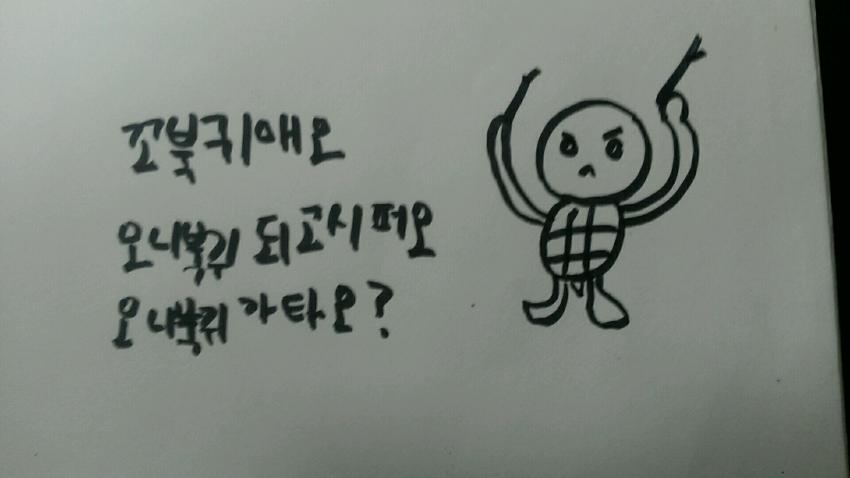 꼬북귀애오
오니북귀 되고시퍼오
오니북귀 가타오?